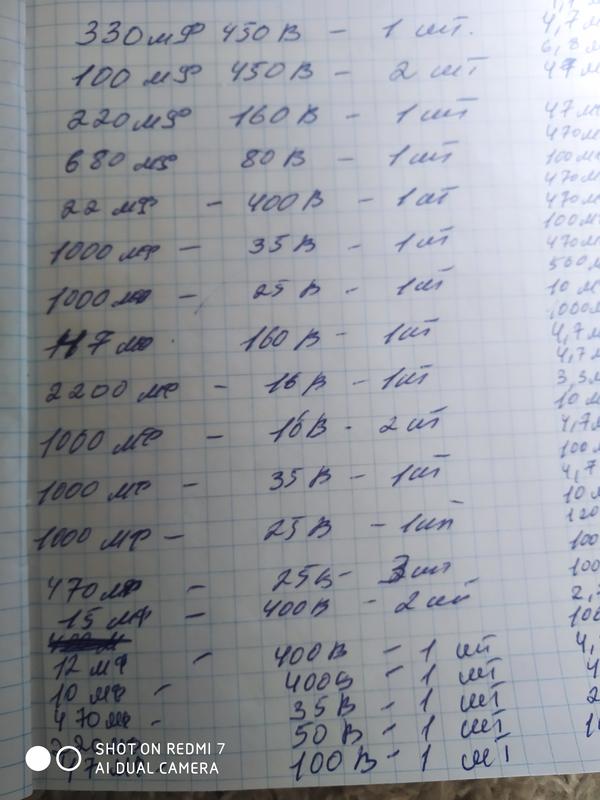 330 мф 450 В - 1 шт.
100 мф 450 В - 2 шт
220 мф 160 В - 1 шт
680 мф 80 В - 1 шт
22 мф - 400 В - 1 шт
1000 мф - 35 В - 1 шт
1000 мф - 25 В - 1 шт
47 мф 160 В - 1 шт
2200 мф - 16 В - 1 шт
1000 мф - 16 В - 2 шт
1000 мф - 35 В - 1 шт
1000 мф - 25 В - 1 шт
470 мф - 25 В - 3 шт
15 мф - 400 В - 2 шт
12 мф - 400 В - 1 шт
10 мф - 400 В - 1 шт
470 мф - 35 В - 1 шт
50 В - 1 шт
100 В - 1 шт
4,7 м
6,8 м
47 м
47 м
470 м
100 м
470 м
470 м
100 м
470 м
560 м
10 м
1000 м
4,7 м
4,7 м
3,3 м
10 м
4,7 м
100 м
4,7
10 м
120
100
100
SHOT ON REDMI 7
AI DUAL CAMERA